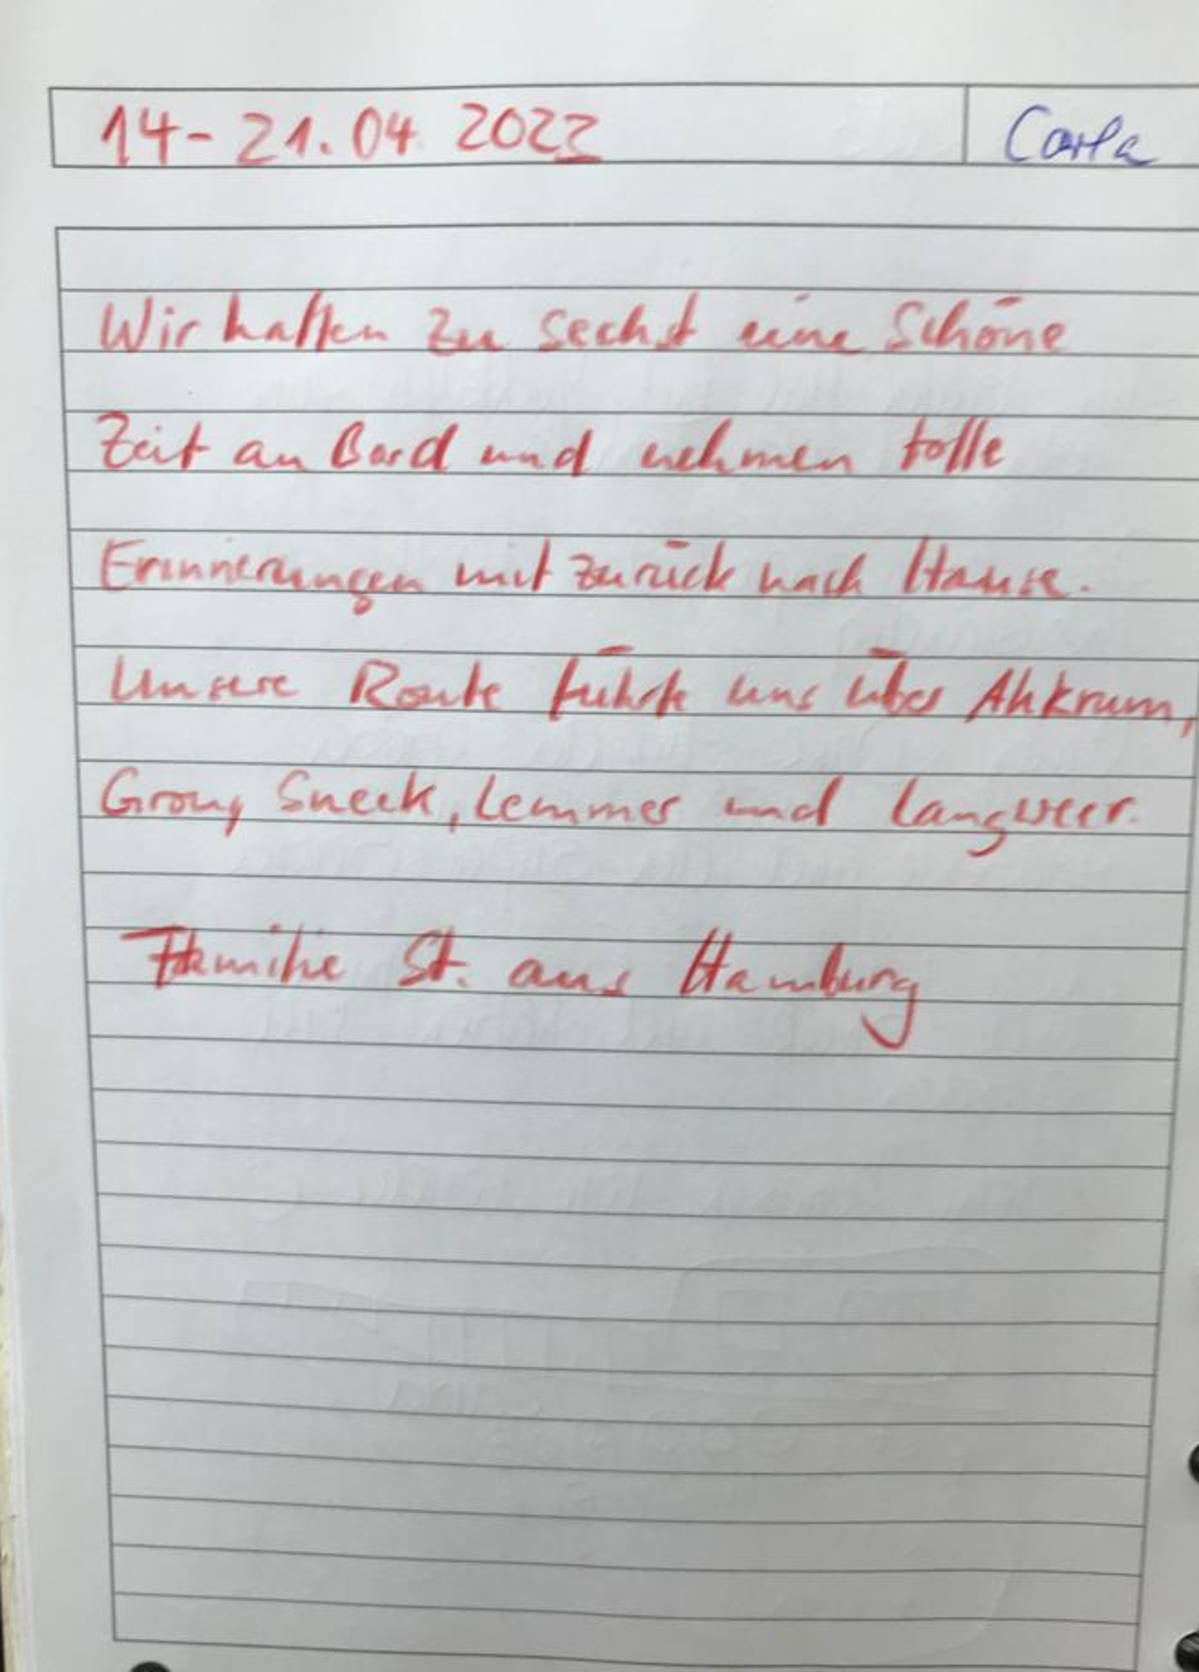 14-21.04 2022
Carla
Wir hatten zu sechst eine schöne
Zeit an Bord und nehmen tolle
Erinnerungen mit zurück nach Hause.
Unsere Route führte uns über Ahkrum,
Grou, Sneek, Lemmer und Langweer.
Familie St. aus Hamburg